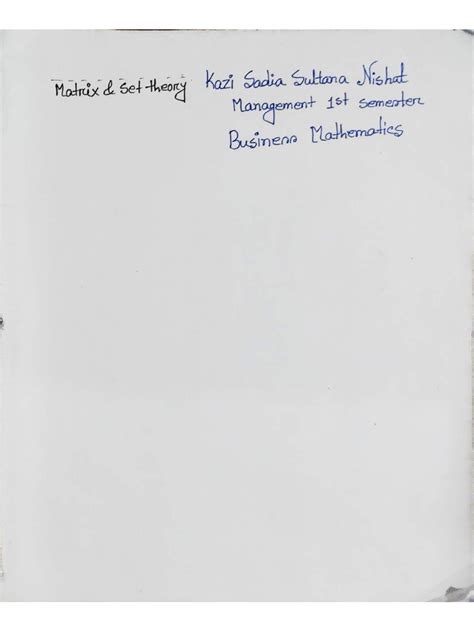 Matrix & Set theory
Kazi Sadia Sultana Nishat
Management 1st semester
Business Mathematics